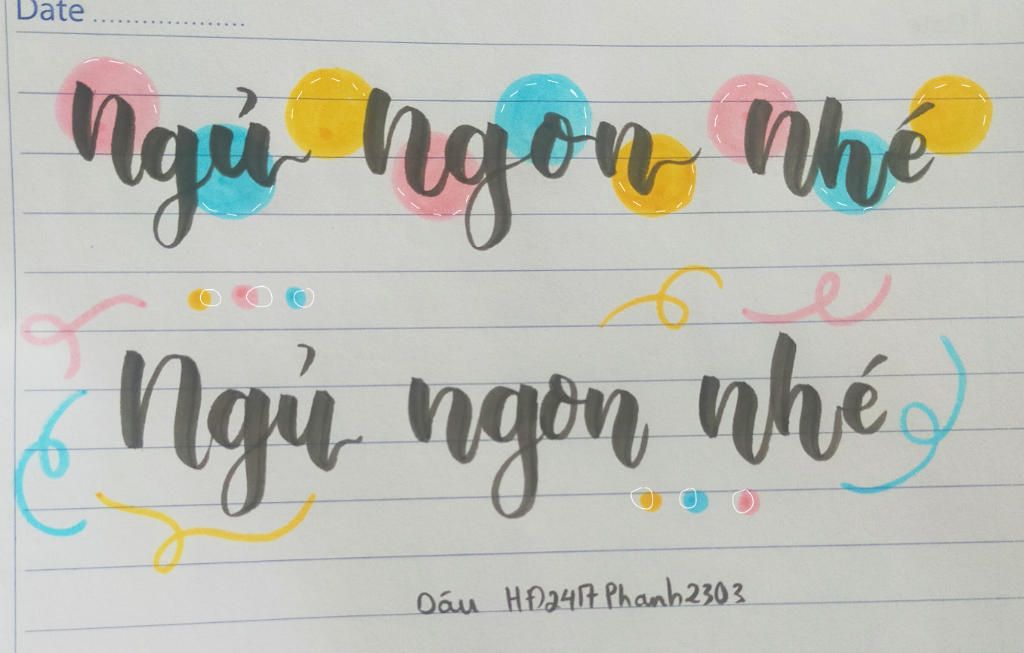 Date ....................
Ngủ Ngon nhé
Ngủ ngon nhé
Dấu HĐ247Phanh2303